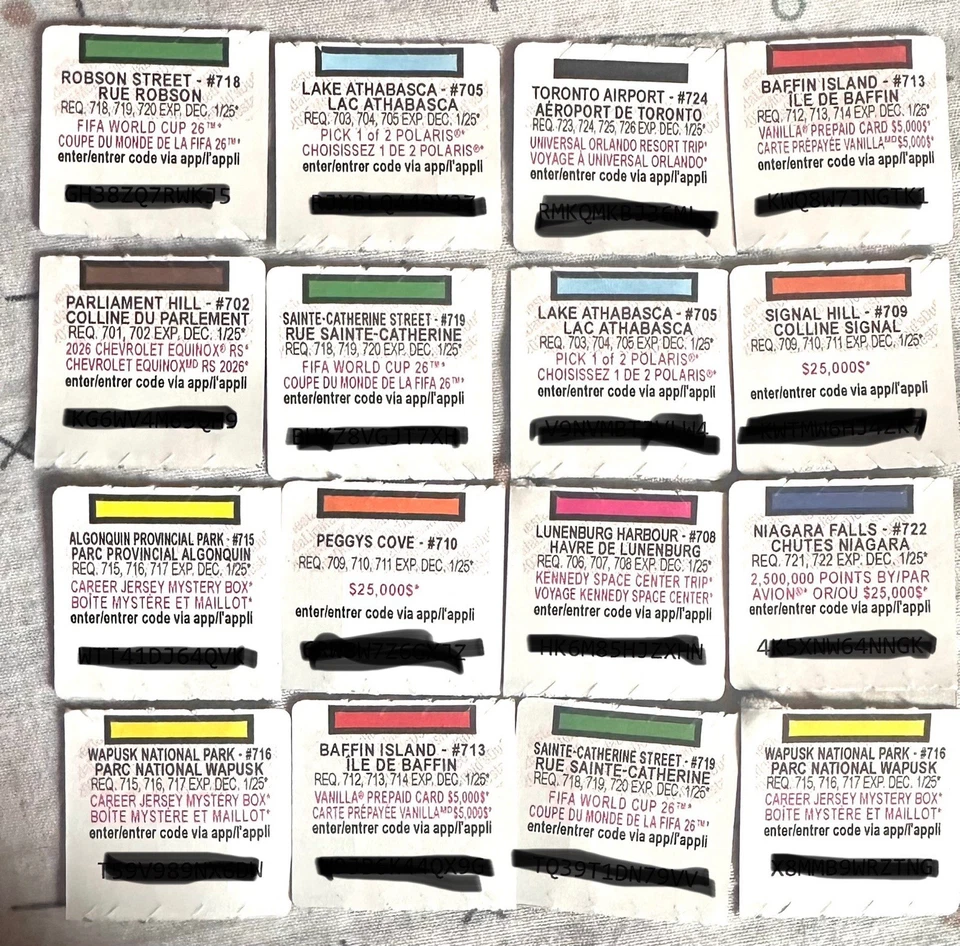 ROBSON STREET - #718
RUE ROBSON
REQ. 718, 719, 720 EXP. DEC. 1/25*
FIFA WORLD CUP 26™*
COUPE DU MONDE DE LA FIFA 26™*
enter/entrer code via app/l'appli
LAKE ATHABASCA - #705
LAC ATHABASCA
REQ. 703, 704, 705 EXP. DEC. 1/25*
PICK 1 of 2 POLARIS®*
CHOISISSEZ 1 DE 2 POLARIS®*
enter/entrer code via app/l'appli
TORONTO AIRPORT - #724
AÉROPORT DE TORONTO
REQ. 723, 724, 725, 726 EXP. DEC. 1/25*
UNIVERSAL ORLANDO RESORT TRIP*
VOYAGE À UNIVERSAL ORLANDO*
enter/entrer code via app/l'appli
BAFFIN ISLAND - #713
ÎLE DE BAFFIN
REQ. 712, 713, 714 EXP. DEC. 1/25*
VANILLA® PREPAID CARD $5,000$*
CARTE PRÉPAYÉE VANILLAᴹᴰ $5,000$*
enter/entrer code via app/l'appli
PARLIAMENT HILL - #702
COLLINE DU PARLEMENT
REQ. 701, 702 EXP. DEC. 1/25*
2026 CHEVROLET EQUINOX® RS*
CHEVROLET EQUINOXᴹᴰ RS 2026*
enter/entrer code via app/l'appli
SAINTE-CATHERINE STREET - #719
RUE SAINTE-CATHERINE
REQ. 718, 719, 720 EXP. DEC. 1/25*
FIFA WORLD CUP 26™*
COUPE DU MONDE DE LA FIFA 26™*
enter/entrer code via app/l'appli
LAKE ATHABASCA - #705
LAC ATHABASCA
REQ. 703, 704, 705 EXP. DEC. 1/25*
PICK 1 of 2 POLARIS®*
CHOISISSEZ 1 DE 2 POLARIS®*
enter/entrer code via app/l'appli
SIGNAL HILL - #709
COLLINE SIGNAL
REQ. 709, 710, 711 EXP. DEC. 1/25*
$25,000$*
enter/entrer code via app/l'appli
ALGONQUIN PROVINCIAL PARK - #715
PARC PROVINCIAL ALGONQUIN
REQ. 715, 716, 717 EXP. DEC. 1/25*
CAREER JERSEY MYSTERY BOX*
BOÎTE MYSTÈRE ET MAILLOT*
enter/entrer code via app/l'appli
PEGGYS COVE - #710
REQ. 709, 710, 711 EXP. DEC. 1/25*
$25,000$*
enter/entrer code via app/l'appli
LUNENBURG HARBOUR - #708
HAVRE DE LUNENBURG
REQ. 706, 707, 708 EXP. DEC. 1/25*
KENNEDY SPACE CENTER TRIP*
VOYAGE KENNEDY SPACE CENTER*
enter/entrer code via app/l'appli
NIAGARA FALLS - #722
CHUTES NIAGARA
REQ. 721, 722 EXP. DEC. 1/25*
2,500,000 POINTS BY/PAR
AVION®* OR/OU $25,000$*
enter/entrer code via app/l'appli
WAPUSK NATIONAL PARK - #716
PARC NATIONAL WAPUSK
REQ. 715, 716, 717 EXP. DEC. 1/25*
CAREER JERSEY MYSTERY BOX*
BOÎTE MYSTÈRE ET MAILLOT*
enter/entrer code via app/l'appli
BAFFIN ISLAND - #713
ÎLE DE BAFFIN
REQ. 712, 713, 714 EXP. DEC. 1/25*
VANILLA® PREPAID CARD $5,000$*
CARTE PRÉPAYÉE VANILLAᴹᴰ $5,000$*
enter/entrer code via app/l'appli
SAINTE-CATHERINE STREET - #719
RUE SAINTE-CATHERINE
REQ. 718, 719, 720 EXP. DEC. 1/25*
FIFA WORLD CUP 26™*
COUPE DU MONDE DE LA FIFA 26™*
enter/entrer code via app/l'appli
WAPUSK NATIONAL PARK - #716
PARC NATIONAL WAPUSK
REQ. 715, 716, 717 EXP. DEC. 1/25*
CAREER JERSEY MYSTERY BOX*
BOÎTE MYSTÈRE ET MAILLOT*
enter/entrer code via app/l'appli